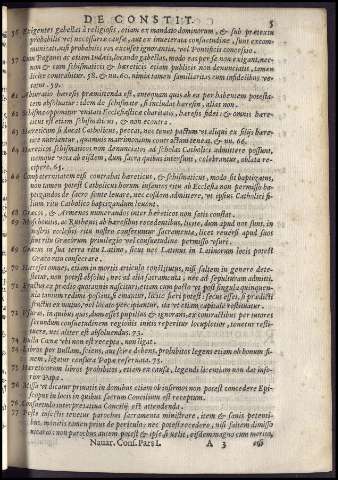 DE CONSTIT. 5
56 Exigentes gabellas à religiosis, etiam ex mandato dominorum, & sub prætextu
probabilis vel necessariæ causæ, aut ex inueterata consuetudine, sunt excom-
municati, nisi probabilis eos excuset ignorantia, vel Pontificis concessio.
57 Cum Paganis ac etiam Iudæis, hæreticis
non & cum schismaticis & hæreticis etiam publicis non denunciatis, tamen
licitè contrahitur. 58. & nu. 60. nimia tamen familiaritas cum infidelibus ve-
tatur. 59.
61 Abiuratio hæresis præmittenda est, antequam quis ab ea per habentem potesta-
tem absoluatur: idem de schismate, si includat hæresim, alias non.
62 Schisma opponitur vnitati Ecclesiasticæ charitatis, hæresis fidei: & omnis hære-
ticus est etiam schismaticus, & non econtra.
63 Hæreticum si ducat Catholicus, peccat, nec tenet pactum vt aliqui ex filijs hære-
ticè nutriantur, quamuis matrimonium contractum teneat, & nu. 66.
64 Hæreticos schismaticos non denunciatos ad scholas Catholici admittere possunt,
neque vota ab eisdem, dum sacra quibus intersunt, celebrantur, ablata re-
cipere. 65.
66 Compaternitatem esti contrahat hæreticus, & schismaticus, modo sit baptizatus,
non tamen potest Catholicus horum infantes ritu ab Ecclesia non permisso ba-
ptizandos de sacro fonte leuare, nec eosdem admittere, vt ipsius Catholici fi-
lium ritu Catholico baptizandum leuent.
68 Græcos, & Armenos nunciandos inter hæreticos non satis constat.
69 Moschouitæ, ac Rutheni ab hæresibus recedentibus, licet, dum apud nos sunt, in
nostris ecclesijs ritu nostro conferantur sacramenta, licet reuersi apud suos
sint ritu Græcorum priuilegio vel consuetudine permisso vsuri.
69 Græcus in sua terra ritu Latino, sicut nec Latinus in Latinorum locis potest
Græco ritu consecrare.
70 Hæreses omnes, etiam in mortis articulo constitutus, nisi saltem in genere dete-
stetur, non potest absolui, nec ad alia sacramenta, nec ad sepulturam admitti.
71 Fructus ex prædio quotannis nascituri, etiam cum pacto vt post singula quinquen-
nia tantum redimi possint, & emuntur, licite fieri potest: secus esset, si prædicti
fructus ex nauo, vel locato percipiantur, aut vt etiam capitale restituatur.
72 Vsuras, in quibus quis, dum esset pupillus & ignorans, ex contractibus per tutores
secundum consuetudinem regionis initis reperitur locupletior, tenetur resti-
tuere, nec aliter est absoluendus. 73.
74 Bulla Cœnæ vbi non est recepta, non ligat.
74 Libros per bullam, sciens, aut scire debens, prohibitos legens etiam ob bonum fi-
nem, ligatur censura Papæ reseruata. 75.
75 Hæreticorum libros prohibitos, etiam ex causa, legendi licentiam non dat infe-
rior Papa.
76 Missa vt dicatur priuatis in domibus etiam ob infirmos non potest concedere Epi-
scopus in locis in quibus sacrum Concilium est receptum.
76 Consuetudo interpretatiua Concilij est attendenda.
77 Peste infectis tenetur parochus sacramenta ministrare, item & sanis petenti-
bus, monitis tamen prius de periculo: nec potest recedere, nisi saltem dimisso
vicario: non parochus autem potest & ipse si velit, eisdem magno cum merito,
Nauar. Cons. Pars I. A 3